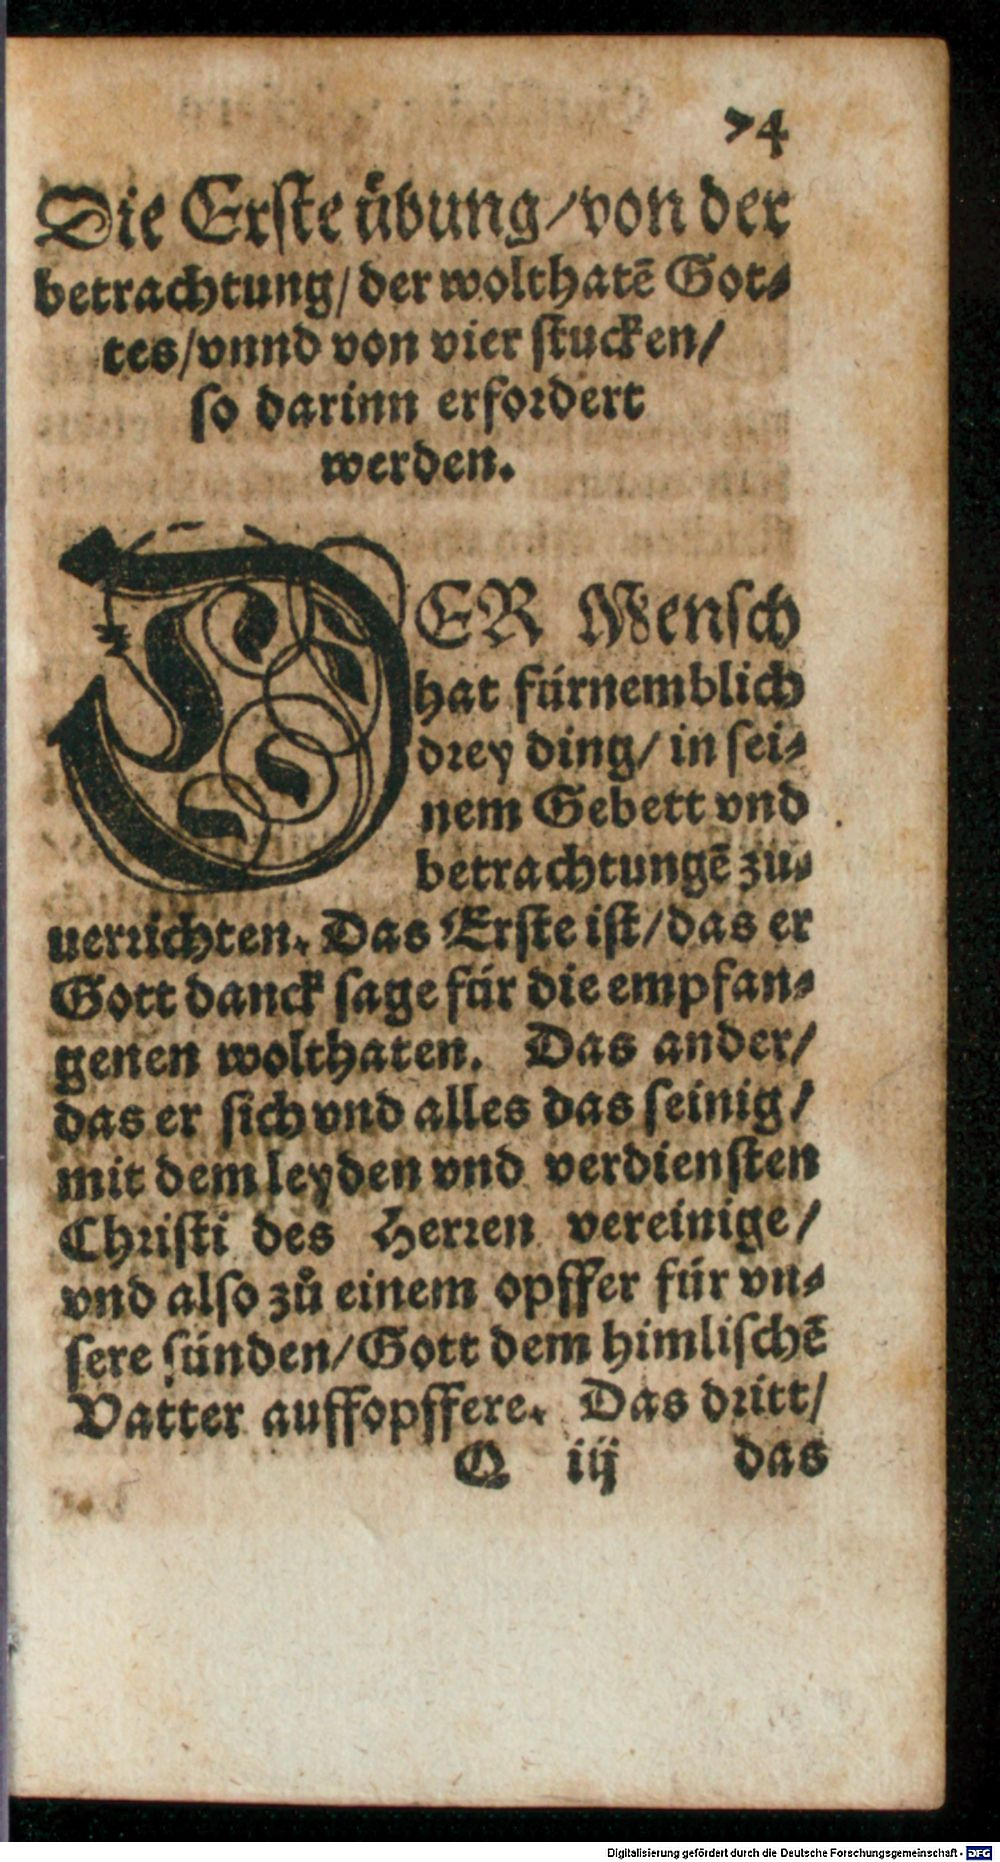 74
Die Erste übung/von der
betrachtung/der wolthatē Got-
tes/vnnd von vier stucken/
so darinn erfordert
werden.
DER Mensch
hat fürnemblich
drey ding/in sei-
nem Gebett vnd
betrachtungē zu-
uerrichten. Das Erste ist/das er
Gott danck sage für die empfan-
genen wolthaten. Das ander/
das er sich vnd alles das seinig/
mit dem leyden vnd verdiensten
Christi des Herren vereinige/
vnd also zů einem opffer für vn-
sere sünden/Gott dem himlischē
Vatter auffopffere. Das dritt/
Q iij das
Digitalisierung gefördert durch die Deutsche Forschungsgemeinschaft - DFG